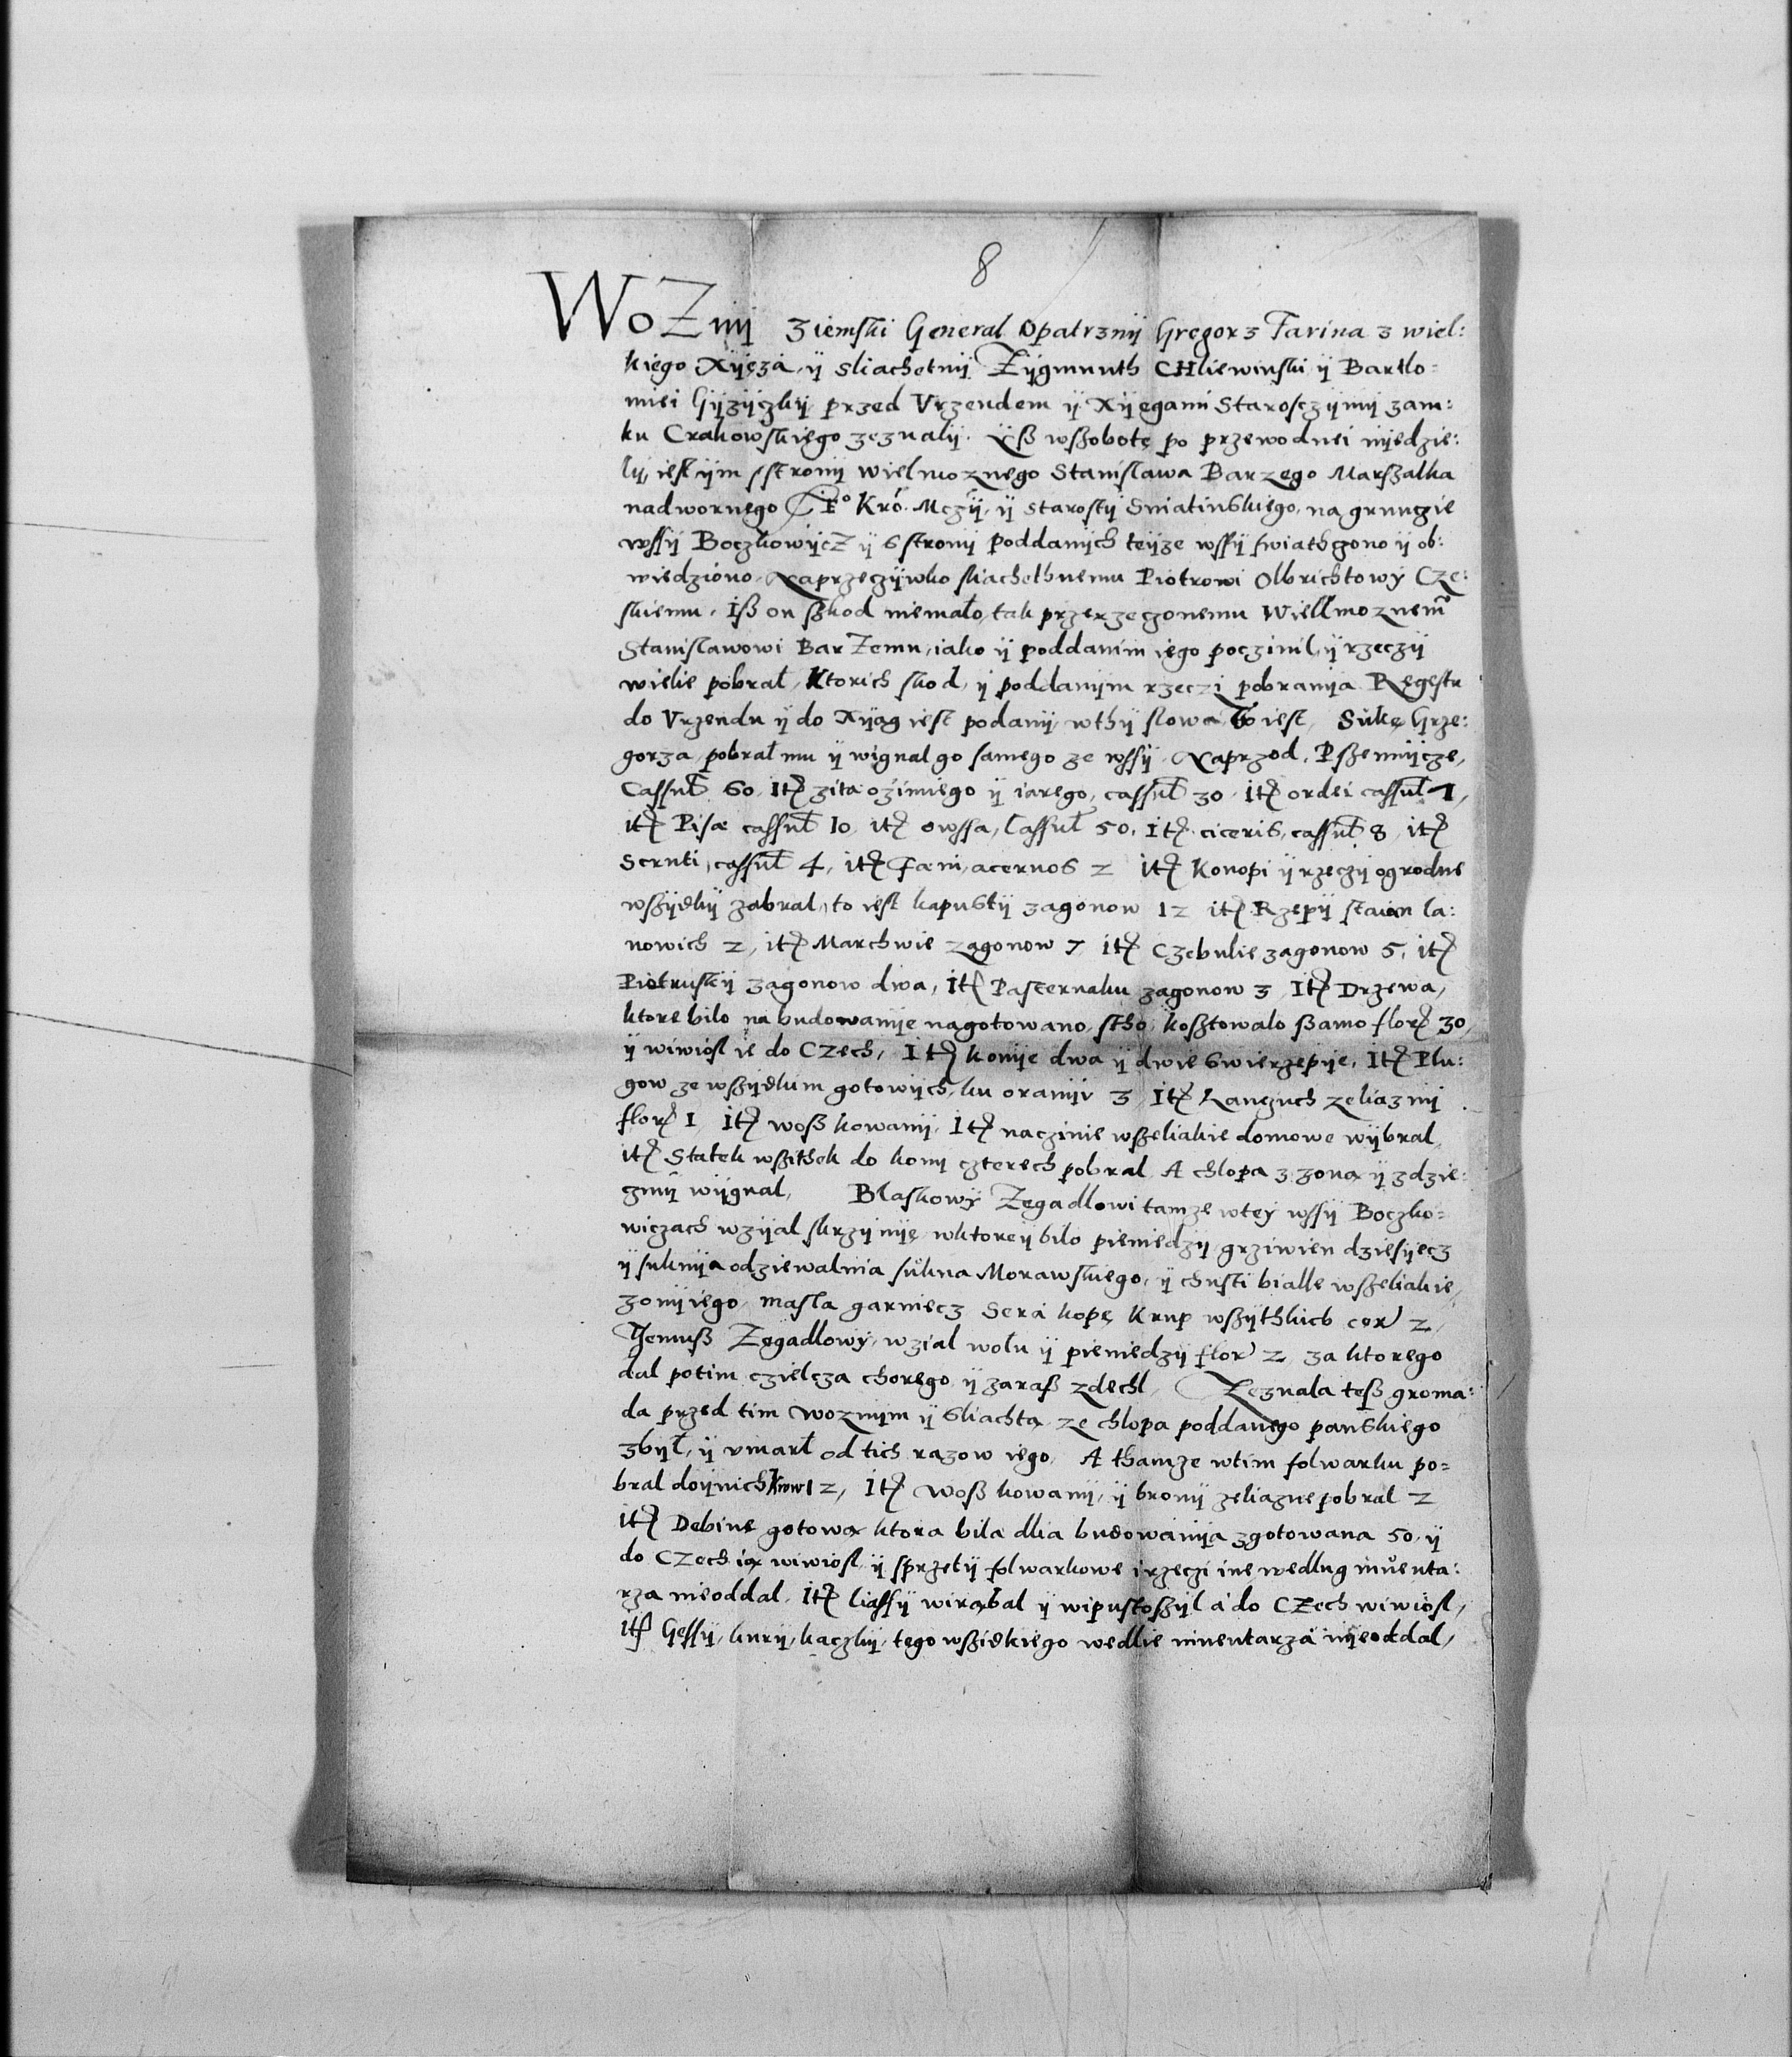 8
WoZnij ziemski General Opatrznij Gregorz Farina z wiel:
kiego Xijęza, ij sliachetnij Zijgmunth CHliewinski ij Bartlo=
miei Gijzijczkij przed Vrzendem ij Xijęgami Starosczijmij zam:
ku Crakowskiego zeznalij. Yß wßobotę po przewodnei nijedzie:
lij, iest ijm sstronij wielmoznego Stanislawa Barzego Marßalka
nadwornego Kró. Mczij, ij starostij Sniatinskiego, na grunczie
wssij Boczkowijcz ij s stronij poddanijch teijze wssij swiathczono ij ob:
wiedziono, Naprzeczijwko sliachethnemu Piotrowi Olbrichtowij Cze:
skiemu, iß on ßkod niemało, tak przerzeczonemu Wiellmoznemo
Stanislawowi BarZemu, iako ij poddanim iego poczinil, ij rzeczij
wielie pobrał, Ktorich skod, ij poddanijm rzeczi pobranija Regestr
do Vrzendu ij do Xijag iest podanij, wthij slowa, to iest, Sukę Grze:
gorza, pobrał mu ij wignal go samego ze wssij. Naprzod, Pßennijcze,
Cassuł 60, Itē zita ozimiego ij iarego, cassuł 30, Itē ordei cassuł 1,
itē Pisæ cassuł 10, itē owssa, Cassuł 50, Itē ciceris, cassuł 8, itē
Scruti, cassuł 4, itē Fœni, acernos 2 itē Konopi ij rzeczij ogrodne
wßijdkij zabral, to iest kapustij zagonow 12 itē Rzepij staian la:
nowich 2, itē Marchwie zagonow 7, itē Czebulie zagonow 5, itē
Piotruskij zagonow dwa, itē Pasternaku zagonow 3, Itē Drzewa,
ktore bilo na budowanije nagotowano, stho, koßtowalo ßamo flor 30,
ij wiwiosl ie do Czech, Itē konije dwa ij dwie swierzepije, Itē Plu:
gow ze wßijdkim gotowijch, ku oranijv 3, Itē Lanczuch zeliaznij
flor 1, Itē woß kowanij, Itē naczinie wßeliakie domowe wijbral,
itē Statek wßithek do konij czterech pobral, A chlopa z zoną ij zdzie:
czmij wijgnal, Blaskowij Zegadlowi tamze wtej wssij Boczko=
wiczach wzijal skrzijniję, wktoreij bilo pieniedzij grziwien dziesijęcz
ij suknija odziewalnia sukna Morawskiego, ij chusti bialle wßeliakie,
zonij iego, masla garniecz Sera kopę Krup wßijthkich cor 2,
Jemuß Zegadlowij, wzial wolu ij pieniedzij flor 2, za ktorego
dal potim czielcza chorego, ij zaraß zdechl, Zeznala teß groma:
da przed tim woznijm ij sliachtą ze chlopa poddanego panskiego
zbijł, ij vmarł od tich razow iego, A thamze wtim folwarku po=
bral doijnich krow 12, Itē woß kowanij, ij bronij zeliazne pobral 2
itē Debine gotową ktora bila dlia budowanija zgotowana 50, ij
do Czech ią wiwiosl, ij sprzetij folwarkowe i rzeczi ine wedlug inuenta:
rza nieoddal, Itē liassij wirąbal ij wipustoßijl a do Czech wiwiosl,
itē Gessij, kurij, kaczkij, tego wßidkiego wedlie inuentarza nijeoddal,